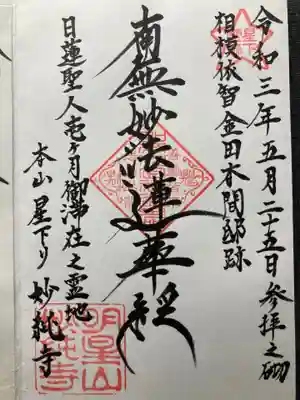 令和三年五月二十五日 参拝之砌
相模依智金田本間邸跡
南無妙法蓮華経
日蓮聖人壱ヶ月御滞在之霊地
本山 星下り 妙純寺
明星山
妙純寺